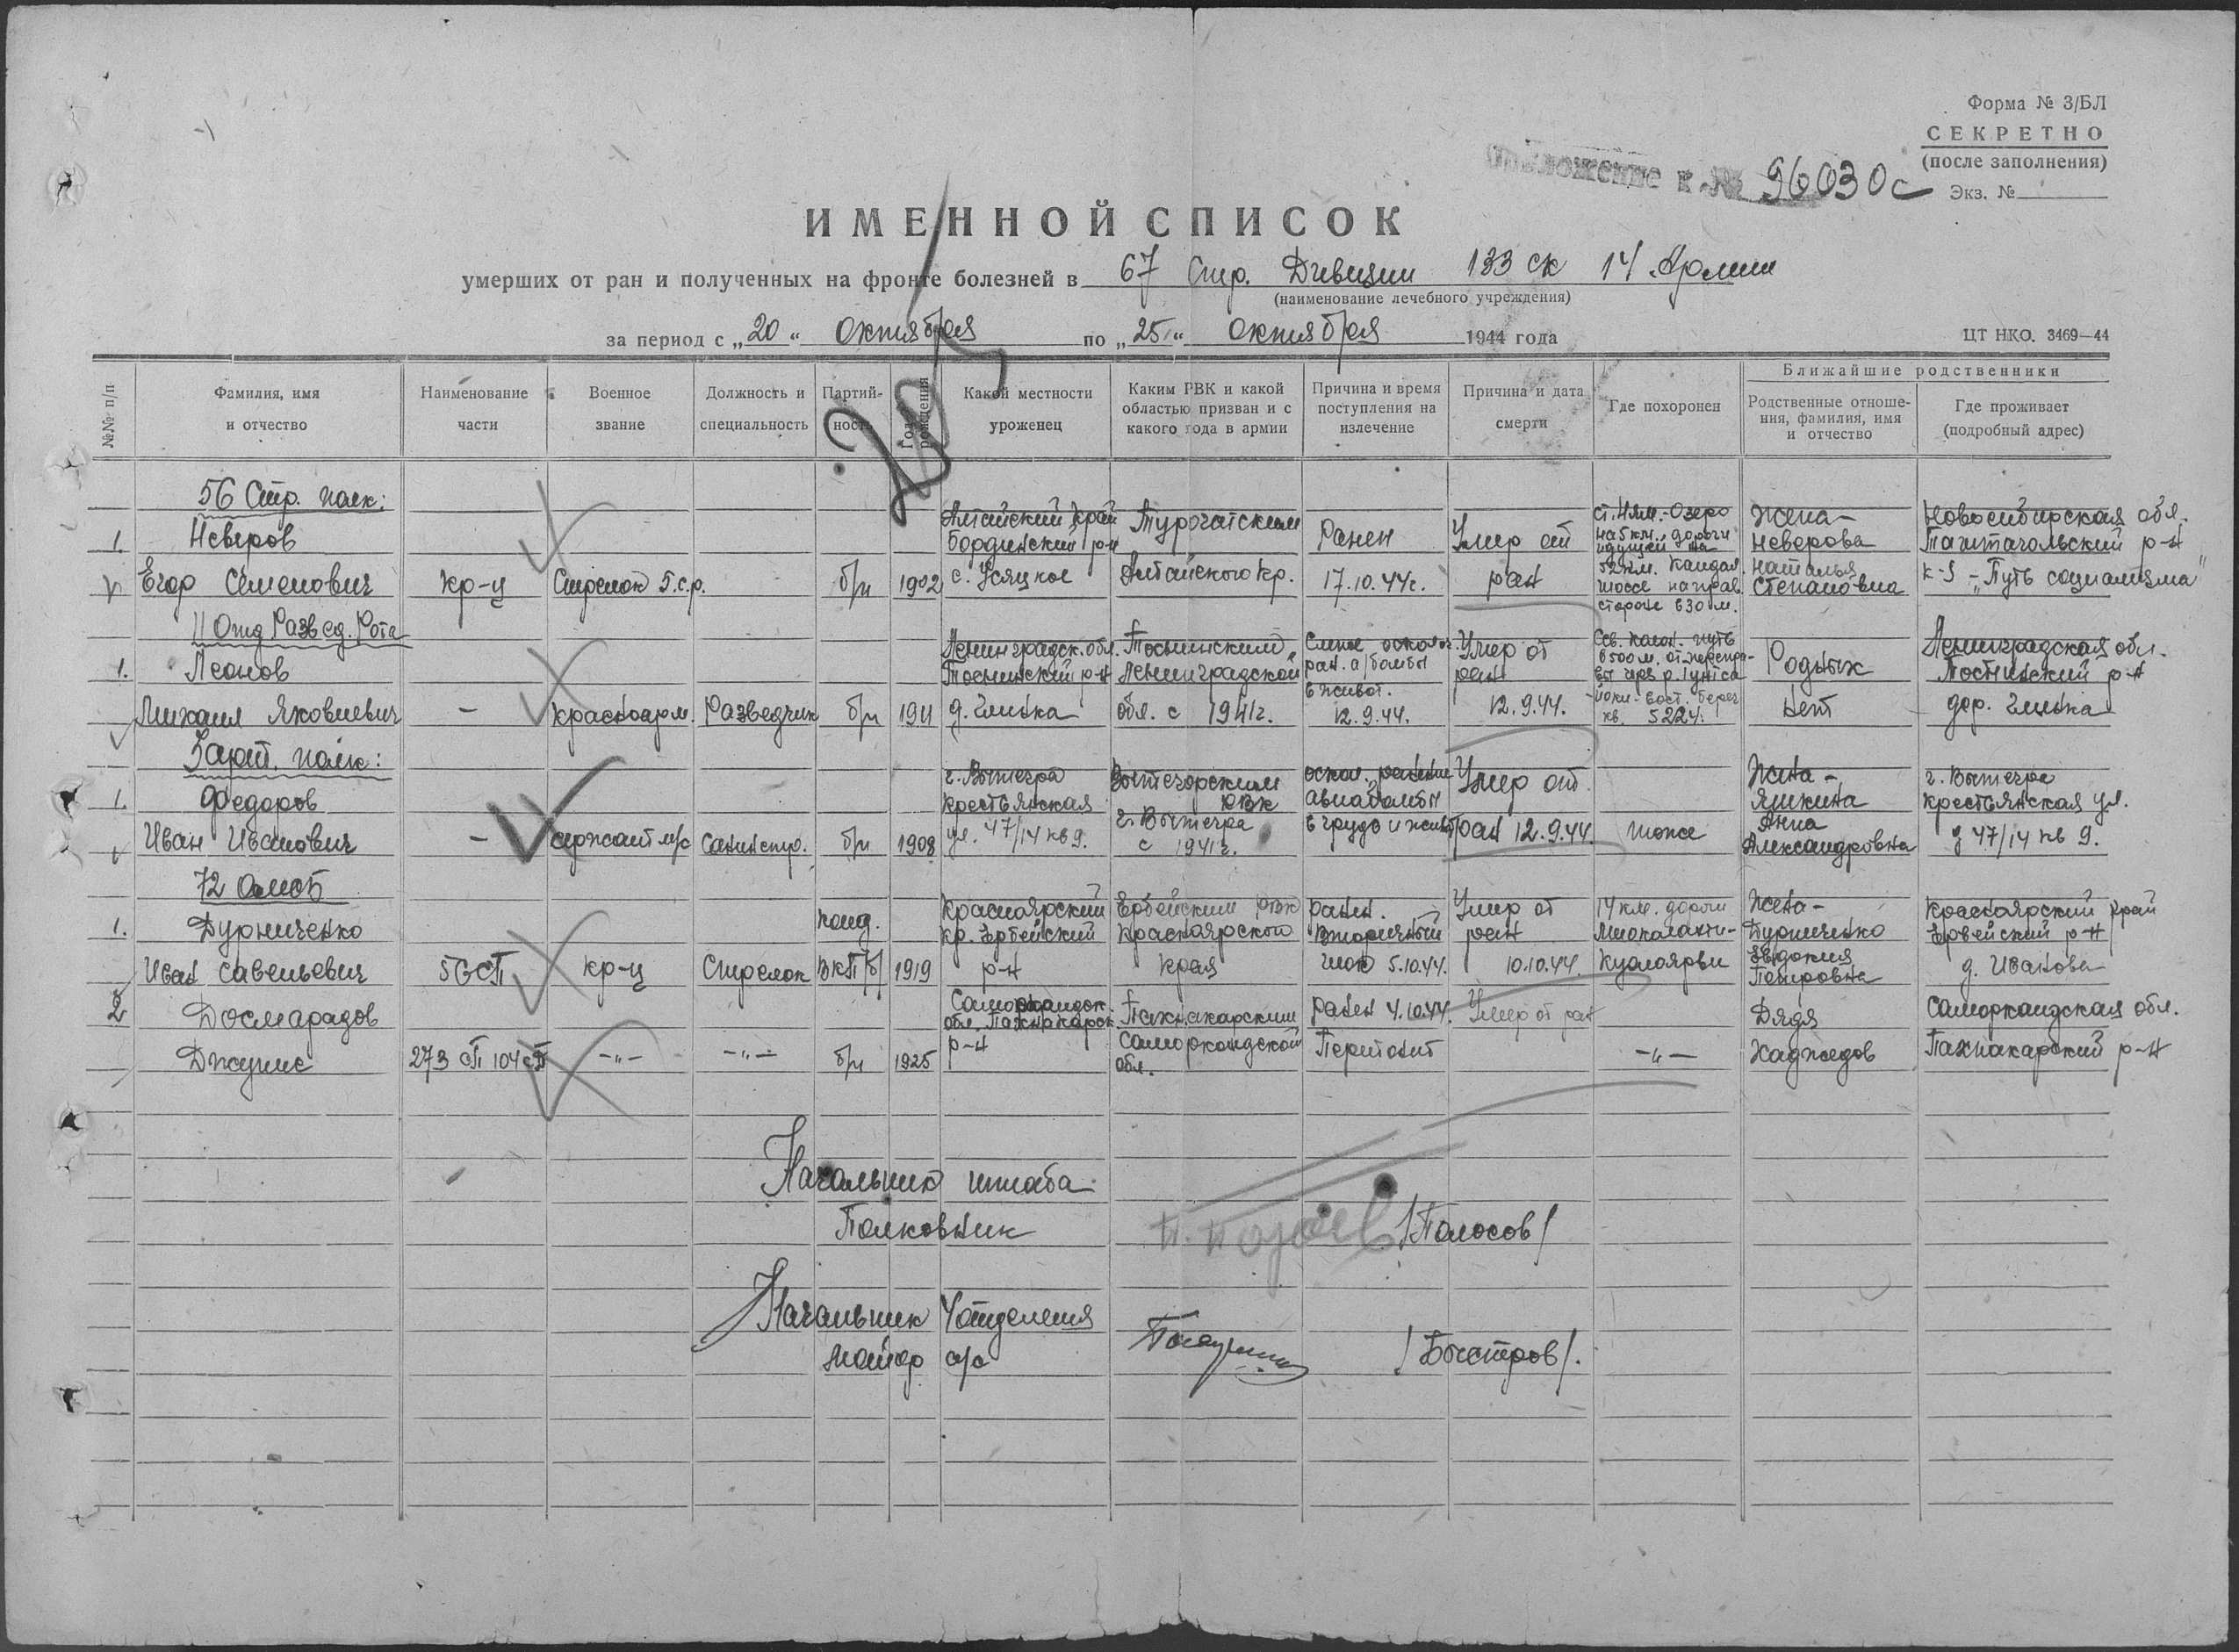 Форма № 3/БЛ
СЕКРЕТНО
(после заполнения)
Экз. №
Приложение к № 96030с
ИМЕННОЙ СПИСОК
умерших от ран и полученных на фронте болезней в 67 Стр. Дивизии 133 ск 14 Армии
(наименование лечебного учреждения)
за период с „20“ Октября по „25“ Октября 1944 года
ЦТ НКО. 3469—44
№№ п/п
Фамилия, имя и отчество
Наименование части
Военное звание
Должность и специальность
Партийность
Год рождения
Какой местности уроженец
Каким РВК и какой областью призван и с какого года в армии
Причина и время поступления на излечение
Причина и дата смерти
Где похоронен
Ближайшие родственники
Родственные отношения, фамилия, имя и отчество
Где проживает (подробный адрес)
205
56 Стр. полк:
1. Неверов Егор Семенович
кр-ц
Стрелок 5.с.р.
б/п
1902
Алтайский край
с. Усяцкое
Турочатским Алтайского кр.
Ранен 17.10.44г.
Умер от ран
на 5 км. дороги идущей на
шоссе на прав. стороне в 30 м.
Жена – Неверова Наталья Степановна
Новосибирская обл. Таштагольский р-н
к-з „Путь социализма“
11 Отд Развед. Рота
1. Леонов Михаил Яковлевич
–
красноарм.
Разведчик
б/п
1911
Ленинградск. обл. Тоснинский р-н д. Глинка
Тоснинским Ленинградской обл. с 1941г.
Слепое осколоч. ран. а/бомбы в живот. 12.9.44.
Умер от ран 12.9.44.
кв. 5224.
Родных нет
Ленинградская обл. Тоснинский р-н дер. Глинка
3 арт. полк:
1. Федоров Иван Иванович
–
сержант м/с
Санинстр.
б/п
1908
г. Вытегра крестьянская ул. 47/14 кв 9.
Вытегорским РВК г. Вытегра с 1941г.
оскол. ранение авиабомбы в грудь и живот
Умер от ран 12.9.44
тоже
Жена – Яшкина Анна Александровна
г. Вытегра крестьянская ул. д 47/14 кв 9.
72 Омсб
1. Дурниченко Иван Савельевич
56 СП
кр-ц
Стрелок
канд. ВКП/б/
1919
Красноярский кр. Ербейский р-н
Ербейским РВК Красноярского края
ранен. Вторичный шок 5.10.44.
Умер от ран 10.10.44.
14 км. дороги
Куолоярви
Жена – Дурниченко Евдокия
Красноярский край Ербейский р-н д. Иванова
2 Досмарадов Джунис
273 СП 104 СД
–„–
–„–
б/п
1925
Самаркандск. обл. Пахнакарск. р-н
Пахнакарским Самаркандской обл.
ранен 4.10.44. Перитонит
Умер от ран
–„–
Дядя Хаджедов
Самаркандская обл. Пахнакарский р-н
Начальник штаба
Полковник /Полосов/
Начальник 4 отделения
Майор а/с /Быстров/.